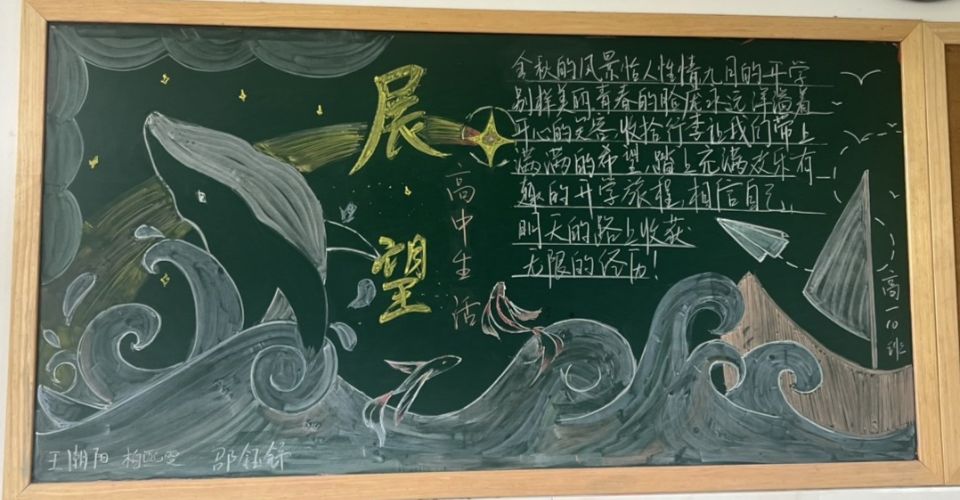 展望
高中生活
金秋的风景怡人性情九月的开学
别样美丽青春的脸庞永远洋溢着
开心的笑容收拾行李让我们带上
满满的希望,踏上充满欢乐有
趣的开学旅程,相信自己,
明天的路上收获
无限的经历!
高一10班
王潮阳 邵钰舒